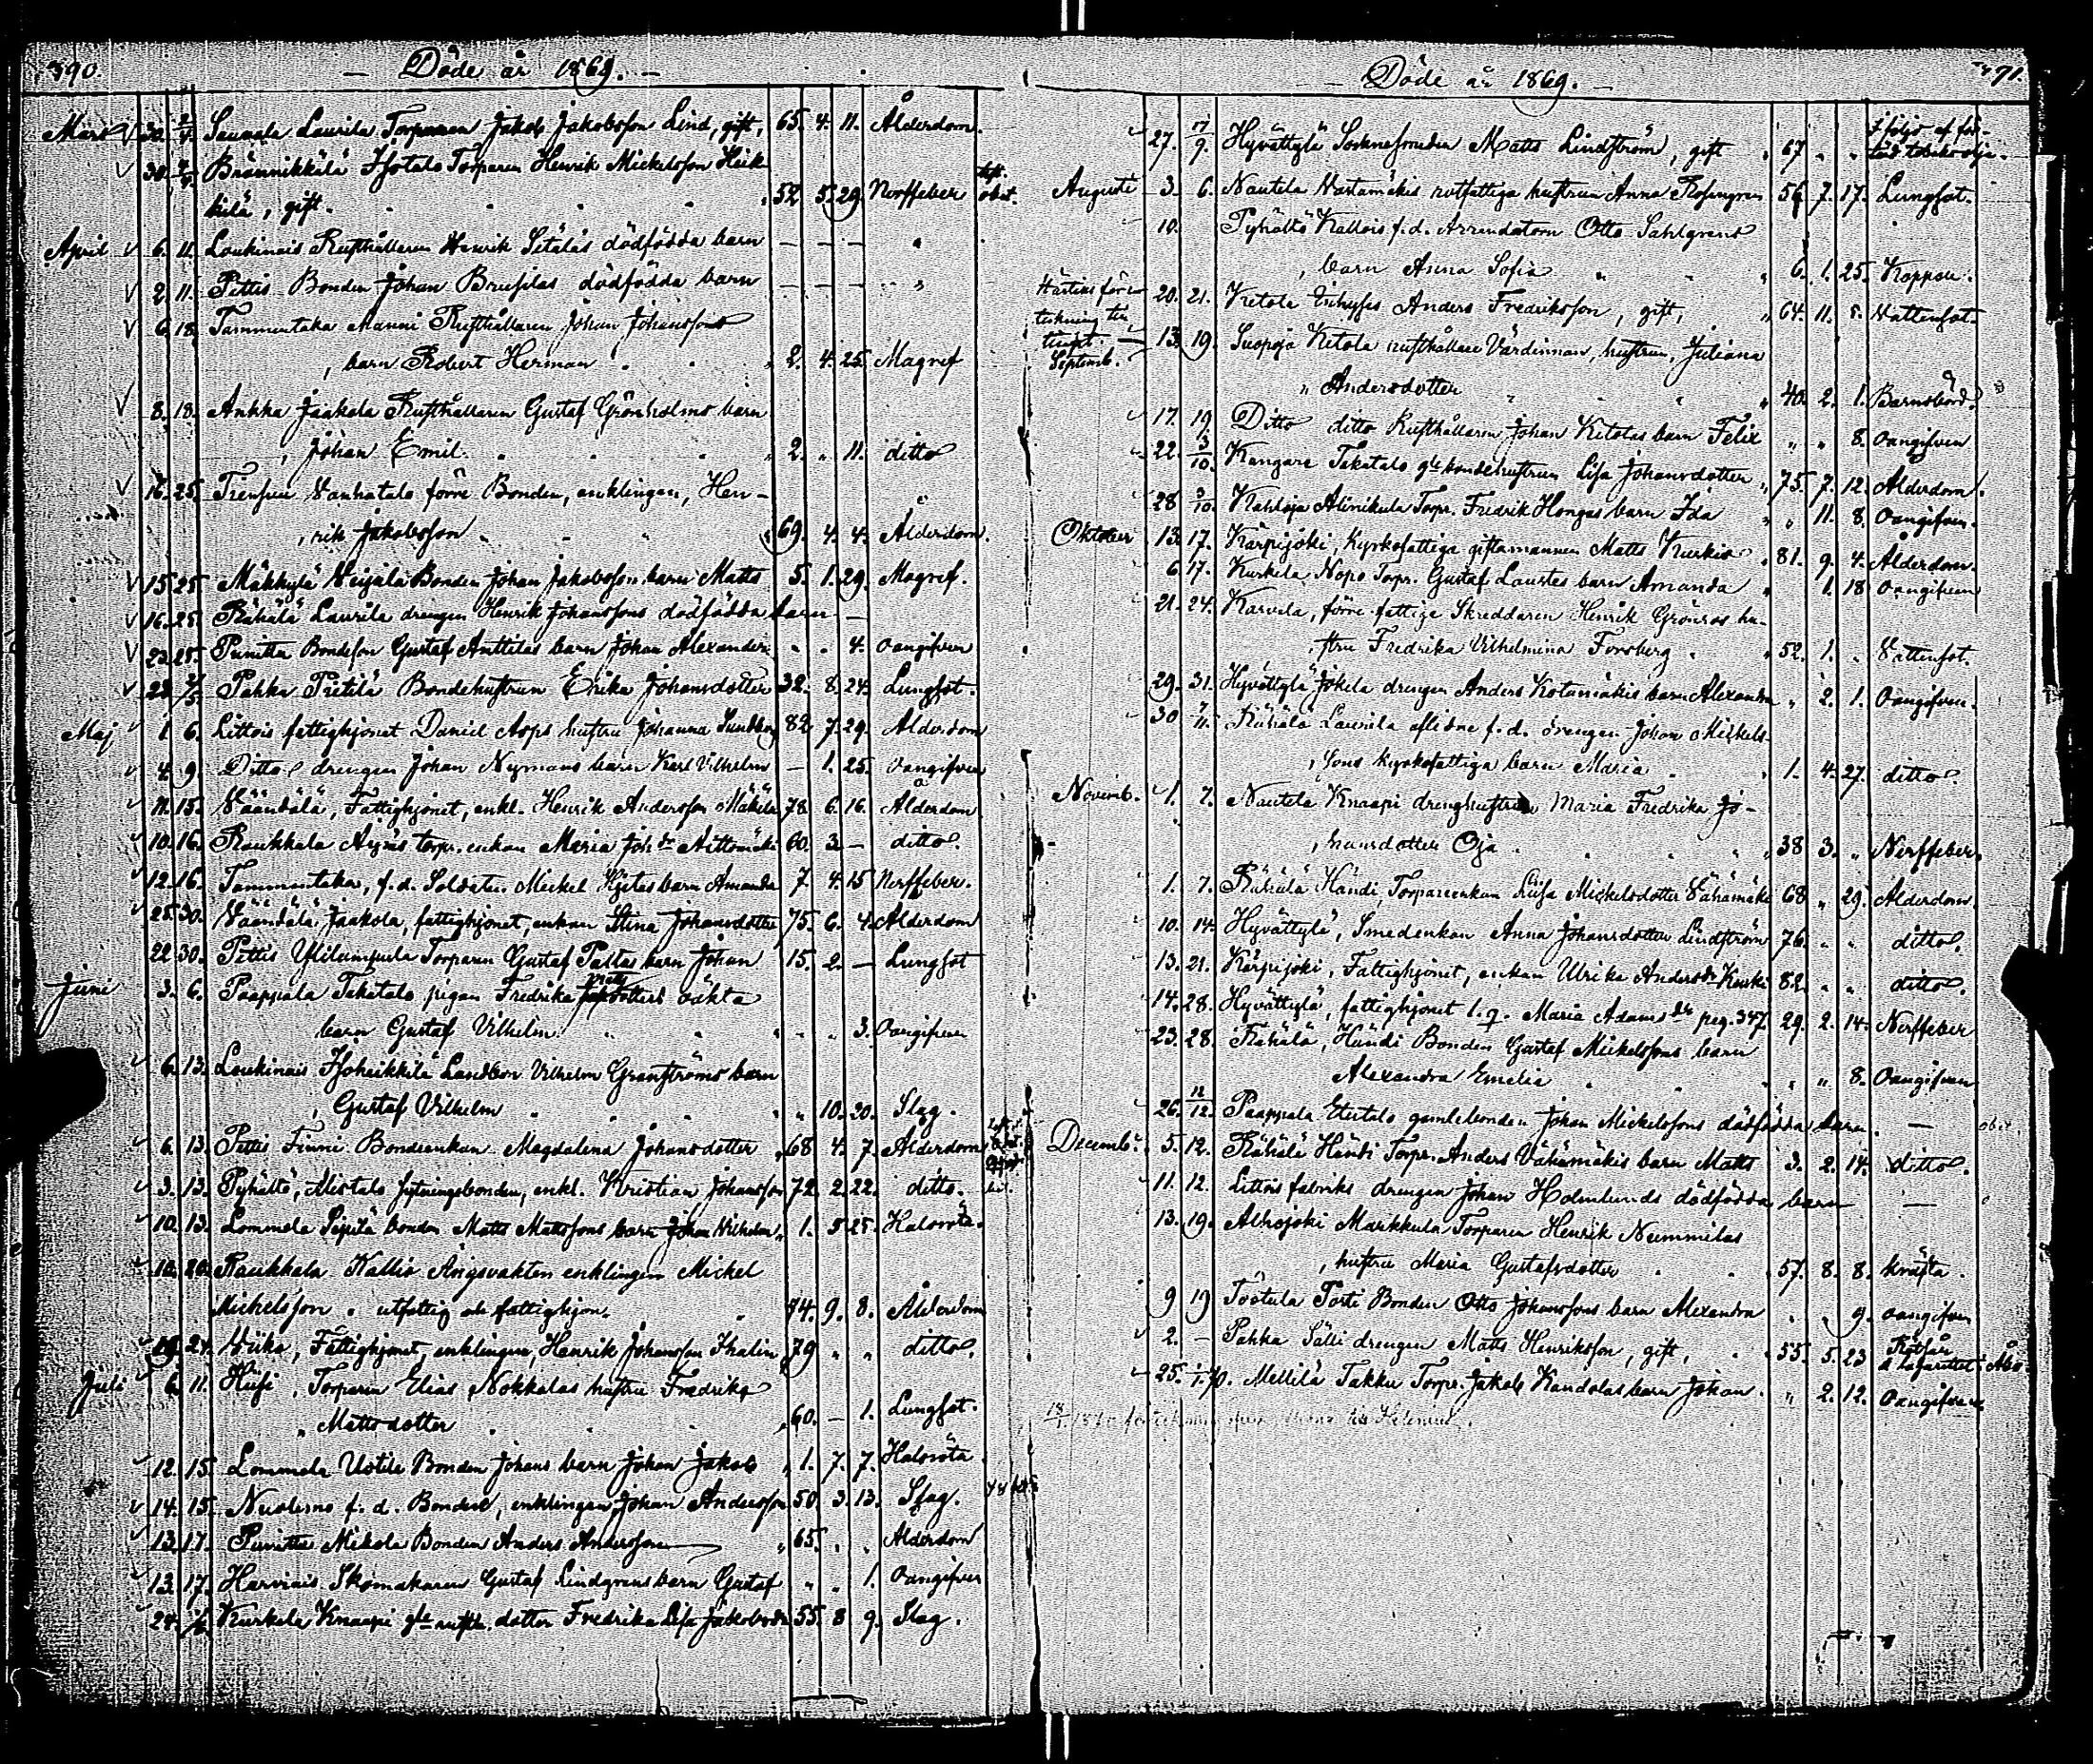 390.
— Döde år 1869. —
Mars 30. 2/4. Saukala Laurila Torparen Jakob Jakobsson Lind, gift, 65. 4. 11. Ålderdom.
30. 4/4. Brännikkälä Isotalo Torparen Henrik Mickelsson Heik-
kilä, gift. 52 5. 29. Nerffeber
April 6. 11. Loukinais Rusthållaren Henrik Sitäläs dödfödda barn — — —
2. 11. Pettis Bonden Johan Brusilas dödfödda barn — — —
6. 18. Tammentaka Manni Rusthållaren Johan Johanssons
, barn Robert Herman 2. 4. 25. Magref
8. 18. Ankka Jaakola Rusthållaren Gustaf Grönholms barn
, Johan Emil. 2. „ 11. ditto
16. 25. Vanhatalo förre Bonden, enklingen, Hen-
, rik Jakobsson 69. 4. 4. Ålderdom.
15. 25. Mäkkylä Seijälä Bonden Johan Jakobsson barn Matts 5. 1. 29. Magref.
16. 25. Rähälä Laurila drengen Henrik Johanssons dödfödda barn —
23. 25. Punitta Bondeson Gustaf Anttilas barn Johan Alexander „ „ 4. Oangifven
23. 2/5. Pahka Pietilä Bondehustrun Erika Johansdotter 32. 8. 24. Lungsot.
Maj 1. 6. Littois fattighjonet Daniel Asps hustru Johanna Sundberg 82. 7. 29. Ålderdom
4. 9. Ditto drengen Johan Nymans barn Karl Vilhelm — 1. 25. Oangifven
11. 15. Väänälä, Fattighjonet, enkl. Henrik Andersson Mäkilä 78. 6. 16. Ålderdom
10. 16. Raukkala Äijäis torp. enkan Maria Joh.dr Aittomäki 60. 3. — ditto.
12. 16. Tammentaka, f. d. Soldaten Mickel Hjetas barn Amanda 7. 4. 15 Nerffeber.
25. 30. Väänälä Jaakola, fattighjonet, enkan Stina Johansdotter 75. 6. 4. Ålderdom
22 30. Pettis Torparen Gustaf Pallas barn Johan 15. 2. — Lungsot
Juni 3. 6. Paappala Takatalo pigan Fredrika Matts dotters oäkta
barn Gustaf Vilhelm „ „ 3. Oangifven
6. 13. Loukinais Isoheikkilä Landbon Vilhelm Granströms barn
, Gustaf Vilhelm „ 10. 20. Slag.
6. 13. Pettis Finni Bondeenkan Magdalena Johansdotter 68 4. 7. Ålderdom
3. 13. Pyhältö, Mistalo sytningsbonden, enkl. Kristian Johansson 72. 2. 22. ditto.
10. 13. Lommela Sipilä bonden Matts Mattssons barn Johan Vilhelm „ 1. 5. 25. Halsröta.
10. 20. Raukkala Kallio Ängsvakten enklingen Mickel
Mickelsson, utfattig och fattighjon. 84. 9. 8. Ålderdom
19. 24. Viika, Fattighjonet, enklingen, Henrik Johansson Ihalin 79 „ „ ditto.
Juli 6. 11. Hiisi, Torparen Elias Nokkalas hustru Fredrika
„ Mattsdotter 60. — 1. Lungsot.
12. 15. Lommela Uotila Bonden Johans barn Johan Jakob „ 1. 7. 7. Halsröta
14. 15. Nuolemo f. d. Bonden, enklingen, Johan Andersson 50. 3. 13. Slag.
13. 17. Punitta Mikola Bonden Anders Andersson 65. „ „ Ålderdom
13. 17. Harvinais Skomakaren Gustaf Lindgrens barn Gustaf „ „ 1. Oangifven
24. Kurkela Knaapi dotter Fredrika Lisa Jakobsdr 55. 8 9. Slag.
— Döde år 1869. —
27. 9. Hyvättylä Sockneskomakaren Matts Lindström, gift 67 „ „ I följd af
Augusti 3. 6. Nautela Vastamäkis rotfattiga hustrun Anna Rosengren 56. 7. 17. Lungsot.
10. Pyhältö Kallois f. d. Arrendatorn Otto Sahlgrens
, barn Anna Sofia 6. 1. 25. Koppor.
20. 21. Ketola Inhyses Anders Fredriksson, gift, „ 64. 11. 5. Vattensot.
Septemb. 13. 19. Suopoja Ketola rusthållare Värdinnan, hustrun, Juliana
„ Andersdotter „ 40. 2. 1. Barnsbörd.
17. 19. Ditto ditto Rusthållaren Johan Ketolas barn Felix „ „ 8. Oangifven
22. 3/10. Kangare Takatalo gle bondehustrun Lisa Johansdotter „ 75. 7. 12. Ålderdom.
28 3/10. Kahloja Alinikula Torp. Fredrik Hongas barn Ida „ 11. 8. Oangifven.
Oktober 13. 17. Kärpijoki, Kyrkofattiga giftamannen Matts Kurkio 81. 9. 4. Ålderdom.
6. 17. Kurkela Nopo Torp. Gustaf Laurtes barn Amanda „ 1. 18 Oangifven
21. 24. Karvela, förre fattige Skreddaren Henrik Grönros hu-
, stru Fredrika Vilhelmina Forsberg „ 52. 1. „ Vattensot.
29. 31. Hyvättylä Jokela drengen Anders Kotamäkis barn Alexandra „ 2. 1. Oangifven.
30 7/11. Rähälä Laurila aflidne f. d. drengen Johan Mickels-
, sons kyrkofattiga barn Maria 1. 4. 27. ditto
Novemb. 1. 7. Nautela Knaapi drenghustrun Maria Fredrika Jo-
, hansdotter Oja 38 3. „ Nerffeber.
1. 7. Rähälä Händi, Torpareenkan Lisa Mickelsdotter Vähämäki 68 „ 29. Ålderdom.
10. 14. Hyvättylä, Smedenkan Anna Johansdotter Lindström 76. „ „ ditto.
13. 21. Kärpijoki, Fattighjonet, enkan Ulrika Andersdr Kurki 82. „ „ ditto.
14. 28. Hyvättylä, fattighjonet l. q. Maria Adamsdr pag. 347. 29. 2. 14. Nerffeber
23. 28. Rähälä, Händi Bonden Gustaf Mickelssons barn
Alexandra Emelia „ „ 8. Oangifven
26. 12/12. Paappala Etutalo gamlebonden Johan Mickelssons dödfödda barn. —
Decembr 5. 12. Rähälä Händi Torp. Anders Vähämäkis barn Matts 3. 2. 14. ditto.
11. 12. Littois fabriks drengen Johan Holmlunds dödfödda barn —
13. 19. Alhojoki Markkula Torparen Henrik Nummilas
, hustru Maria Gustafsdotter 57. 8. 8. kräfta.
9 19 Töötula Torti Bonden Otto Johanssons barn Alexandra „ „ 9. oangifven
2. — Pahka Sälli drengen Matts Henriksson, gift, 55. 5. 23
25. 1/1.70. Mellilä Takku Torpr. Jakob Kandolas barn Johan. „ 2. 12. Oangifven